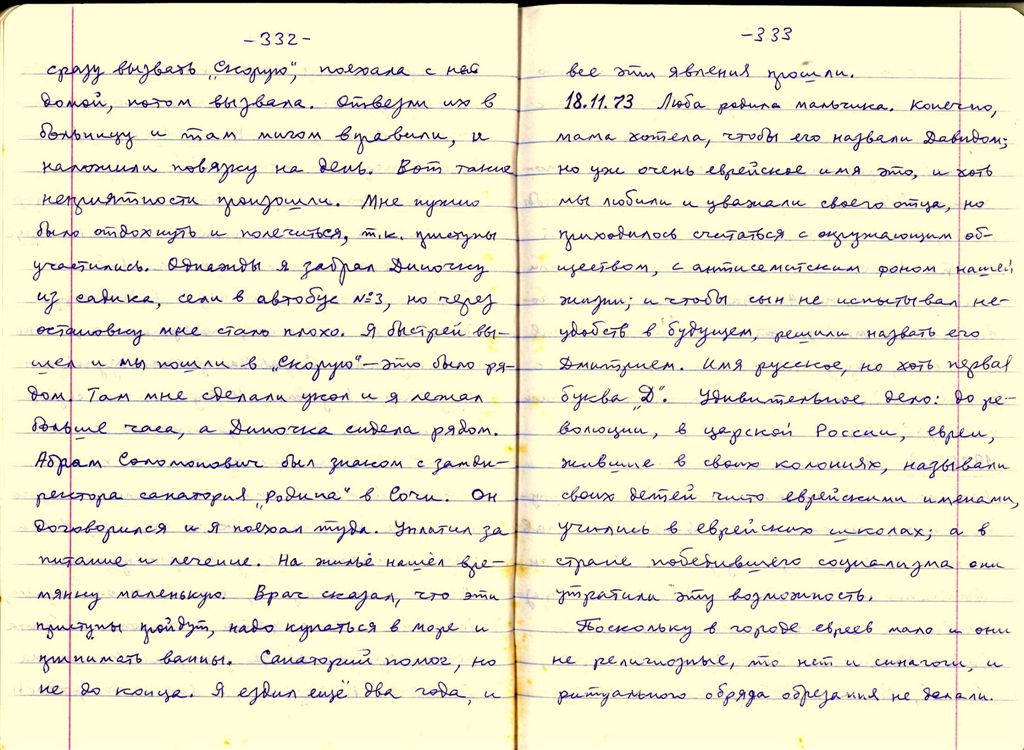 -332-
сразу вызвать „Скорую“, поехала с ней
домой, потом вызвала. Отвезли их в
больницу и там мигом вправили, и
наложили повязку на день. Вот такие
неприятности произошли. Мне нужно
было отдохнуть и полечиться, т.к. приступы
участились. Однажды я забрал Диночку
из садика, сели в автобус №3, но через
остановку мне стало плохо. Я быстрей вы-
шел и мы пошли в „Скорую“ – это было ря-
дом. Там мне сделали укол и я лежал
больше часа, а Диночка сидела рядом.
Абрам Соломонович был знаком с замди-
ректора санатория „Родина“ в Сочи. Он
договорился и я поехал туда. Уплатил за
питание и лечение. На жильё нашёл вре-
мянку маленькую. Врач сказал, что эти
приступы пройдут, надо купаться в море и
принимать ванны. Санаторий помог, но
не до конца. Я ездил ещё два года, и
-333
все эти явления прошли.
18.11.73 Люба родила мальчика. Конечно,
мама хотела, чтобы его назвали Давидом;
но уж очень еврейское имя это, и хоть
мы любили и уважали своего отца, но
приходилось считаться с окружающим об-
ществом, с антисемитским фоном нашей
жизни; и чтобы сын не испытывал не-
удобств в будущем, решили назвать его
Дмитрием. Имя русское, но хоть первая
буква „Д“. Удивительное дело: до ре-
волюции, в царской России, евреи,
жившие в своих колониях, называли
своих детей чисто еврейскими именами,
учились в еврейских школах; а в
стране победившего социализма они
утратили эту возможность.
Поскольку в городе евреев мало и они
не религиозные, то нет и синагоги, и
ритуального обряда обрезания не делали.